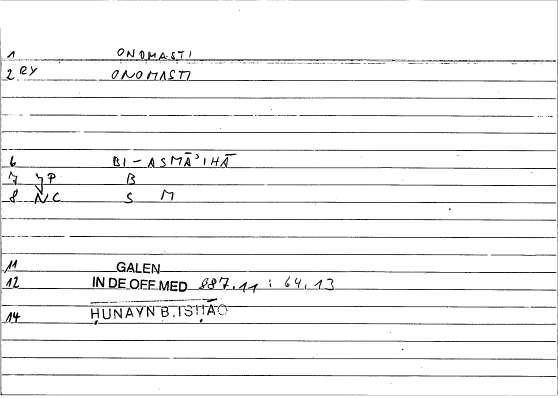 1 ONOMASTI
2 RY ONOMASTI
6 BI-ASMĀʾIHĀ
7 YP B
8 NC S M
11 GALEN
12 IN DE OFF MED 887.11 : 64.13
14 ḤUNAYN B. ISḤĀQ